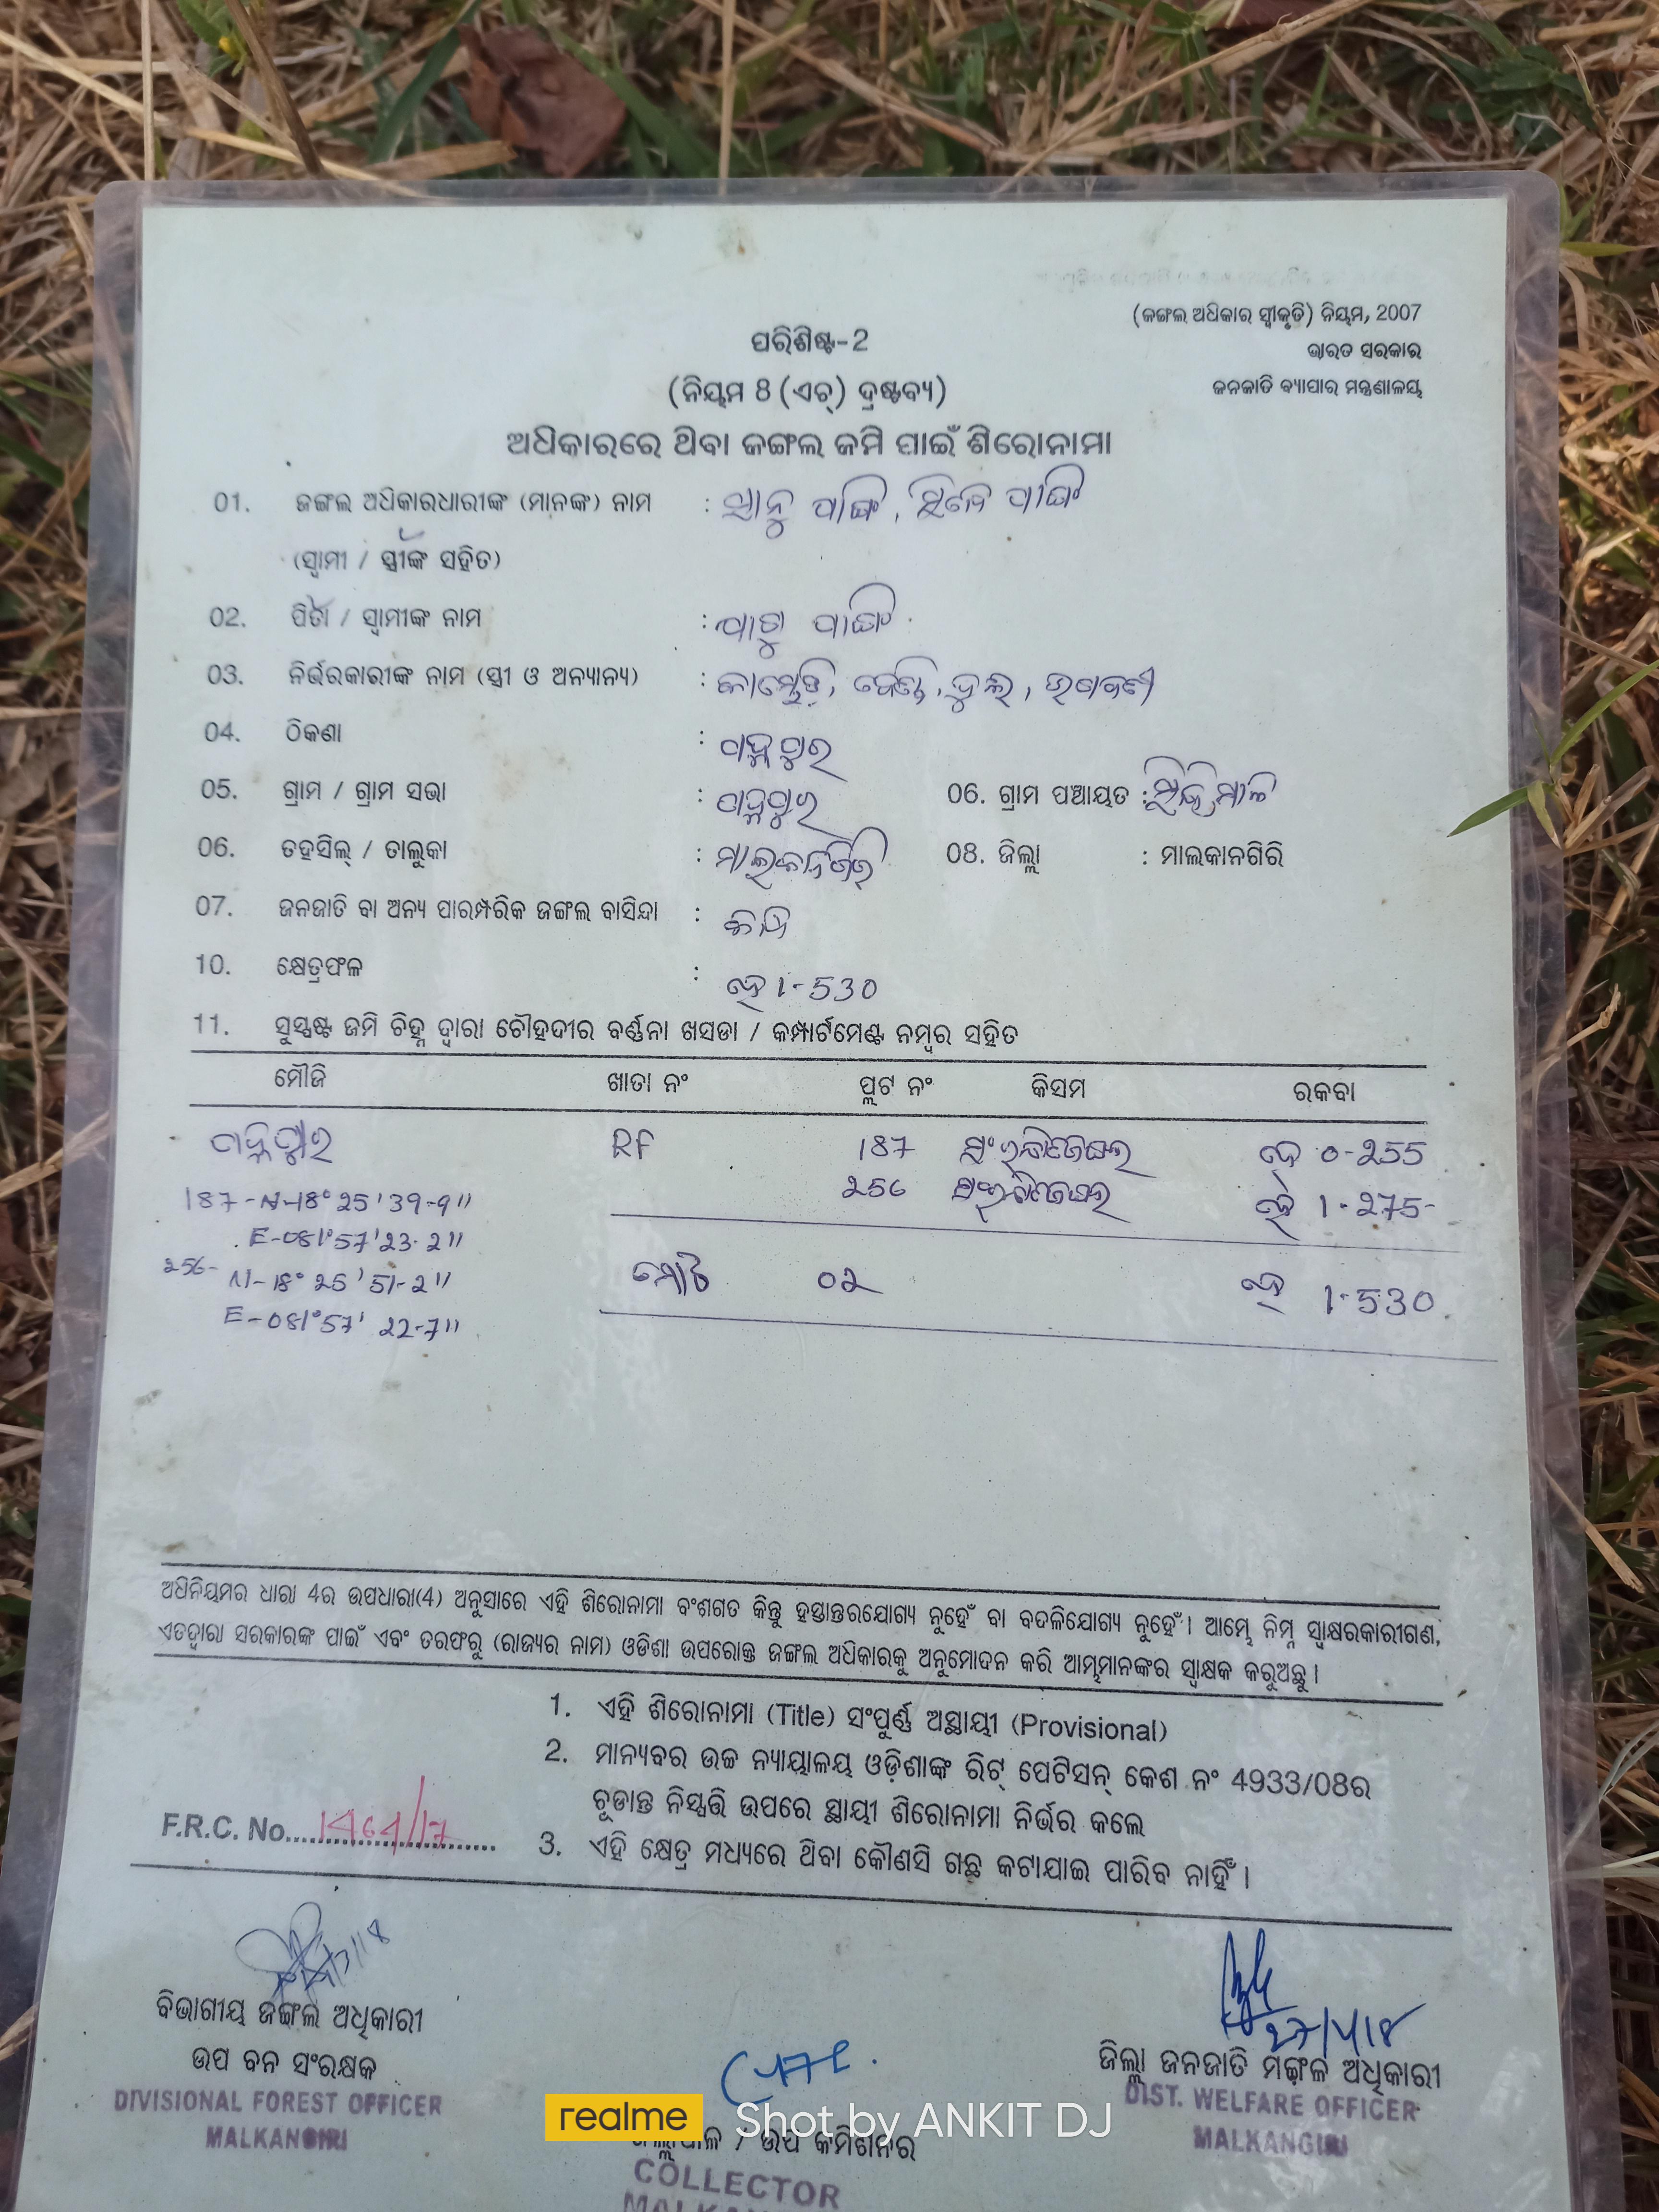 (ଜଙ୍ଗଲ ଅଧିକାର ସ୍ୱୀକୃତି) ନିୟମ, 2007
ଭାରତ ସରକାର
ଜନଜାତି ବ୍ୟାପାର ମନ୍ତ୍ରଣାଳୟ
ପରିଶିଷ୍ଟ-2
(ନିୟମ 8 (ଏଚ୍) ଦ୍ରଷ୍ଟବ୍ୟ)
ଅଧିକାରରେ ଥିବା ଜଙ୍ଗଲ ଜମି ପାଇଁ ଶିରୋନାମା
01. ଜଙ୍ଗଲ ଅଧିକାରଧାରୀଙ୍କ (ମାନଙ୍କ) ନାମ :
(ସ୍ୱାମୀ / ସ୍ତ୍ରୀଙ୍କ ସହିତ)
02. ପିତା / ସ୍ୱାମୀଙ୍କ ନାମ :
03. ନିର୍ଭରକାରୀଙ୍କ ନାମ (ସ୍ତ୍ରୀ ଓ ଅନ୍ୟାନ୍ୟ) :
04. ଠିକଣା :
05. ଗ୍ରାମ / ଗ୍ରାମ ସଭା : 06. ଗ୍ରାମ ପଞ୍ଚାୟତ :
06. ତହସିଲ୍ / ତାଲୁକା : ମାଲକାନଗିରି 08. ଜିଲ୍ଲା : ମାଲକାନଗିରି
07. ଜନଜାତି ବା ଅନ୍ୟ ପାରମ୍ପରିକ ଜଙ୍ଗଲ ବାସିନ୍ଦା :
10. କ୍ଷେତ୍ରଫଳ : ହେ 1-530
11. ସୁସ୍ପଷ୍ଟ ଜମି ଚିହ୍ନ ଦ୍ୱାରା ଚୌହଦୀର ବର୍ଣ୍ଣନା ଖସଡା / କମ୍ପାର୍ଟମେଣ୍ଟ ନମ୍ବର ସହିତ
ମୌଜି ଖାତା ନଂ ପ୍ଲଟ ନଂ କିସମ ରକବା
RF 187 ହେ 0-255
187-N-18° 25' 39-9" 256 ହେ 1-275-
E-081°57'23-2"
256- N-18° 25' 51-2" ମୋଟ 02 ହେ 1-530
E-081°57' 22-7"
ଅଧିନିୟମର ଧାରା 4ର ଉପଧାରା(4) ଅନୁସାରେ ଏହି ଶିରୋନାମା ବଂଶଗତ କିନ୍ତୁ ହସ୍ତାନ୍ତରଯୋଗ୍ୟ ନୁହେଁ ବା ବଦଳିଯୋଗ୍ୟ ନୁହେଁ। ଆମ୍ଭେ ନିମ୍ନ ସ୍ୱାକ୍ଷରକାରୀଗଣ,
ଏତଦ୍ୱାରା ସରକାରଙ୍କ ପାଇଁ ଏବଂ ତରଫରୁ (ରାଜ୍ୟର ନାମ) ଓଡିଶା ଉପରୋକ୍ତ ଜଙ୍ଗଲ ଅଧିକାରକୁ ଅନୁମୋଦନ କରି ଆମ୍ଭମାନଙ୍କର ସ୍ୱାକ୍ଷକ କରୁଅଛୁ।
1. ଏହି ଶିରୋନାମା (Title) ସଂପୁର୍ଣ୍ଣ ଅସ୍ଥାୟୀ (Provisional)
2. ମାନ୍ୟବର ଉଚ୍ଚ ନ୍ୟାୟାଳୟ ଓଡ଼ିଶାଙ୍କ ରିଟ୍ ପେଟିସନ୍ କେଶ ନଂ 4933/08ର
ଚୂଡାନ୍ତ ନିସ୍ପତ୍ତି ଉପରେ ସ୍ଥାୟୀ ଶିରୋନାମା ନିର୍ଭର କଲେ
F.R.C. No.
3. ଏହି କ୍ଷେତ୍ର ମଧ୍ୟରେ ଥିବା କୌଣସି ଗଛ କଟାଯାଇ ପାରିବ ନାହିଁ।
ବିଭାଗୀୟ ଜଙ୍ଗଲ ଅଧିକାରୀ
ଉପ ବନ ସଂରକ୍ଷକ
DIVISIONAL FOREST OFFICER
MALKANGIRI
27/4/18
ଜିଲ୍ଲା ଜନଜାତି ମଙ୍ଗଳ ଅଧିକାରୀ
DIST. WELFARE OFFICER
MALKANGIRI
/ ଉପ କମିଶନର
COLLECTOR
realme Shot by ANKIT DJ